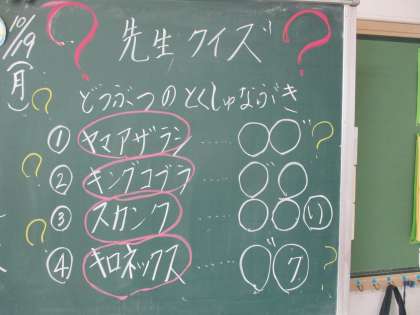 10/19(月)
? 先生クイズ ?
どうぶつのとくしゅなぶき
① ヤマアザラシ ‥‥ ○○゛?
② キングコブラ ‥‥ ○゛○
③ スカンク ‥‥ ○○(い)
④ キロネックス ‥‥ ○゛ク ?